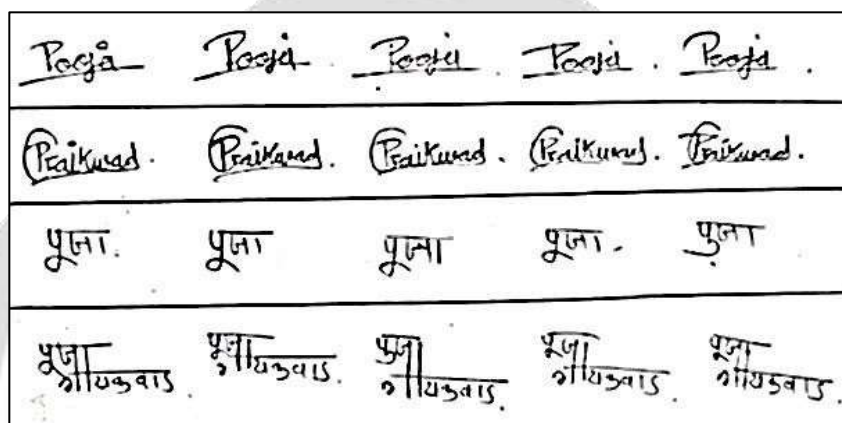 Pooja Pooja Pooja Pooja . Pooja .
Praikwad . Praikwad . Praikwad . Praikwad . Praikwad .
पूजा . पूजा पूजा पूजा . पुजा
पूजा पूजा पुजा पूजा पूजा
गायकवाड . गायकवाड . गायकवाड . गायकवाड . गायकवाड .